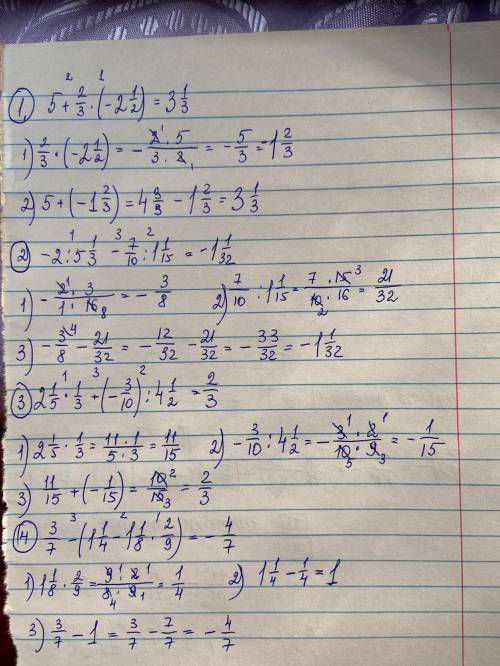 1. 5 + 2/3 · (-2 1/2) = 3 1/3
1) 2/3 · (-2 1/2) = - 2·5/3·2 = - 5/3 = -1 2/3
2) 5 + (-1 2/3) = 4 3/3 - 1 2/3 = 3 1/3
2) -2 : 5 1/3 - 7/10 : 1 1/15 = -1 1/32
1) - 2·3/1·16 = - 3/8 2) 7/10 : 1 1/15 = 7·15/10·16 = 21/32
3) - 3/8 - 21/32 = - 12/32 - 21/32 = - 33/32 = -1 1/32
3) 2 1/5 · 1/3 + (- 3/10) : 4 1/2 = 2/3
1) 2 1/5 · 1/3 = 11·1/5·3 = 11/15 2) - 3/10 : 4 1/2 = - 3·2/10·9 = - 1/15
3) 11/15 + (- 1/15) = 10/15 = 2/3
14) 3/7 - (1 1/4 - 1 1/8 · 2/9) = - 4/7
1) 1 1/8 · 2/9 = 9·2/8·9 = 1/4 2) 1 1/4 - 1/4 = 1
3) 3/7 - 1 = 3/7 - 7/7 = - 4/7